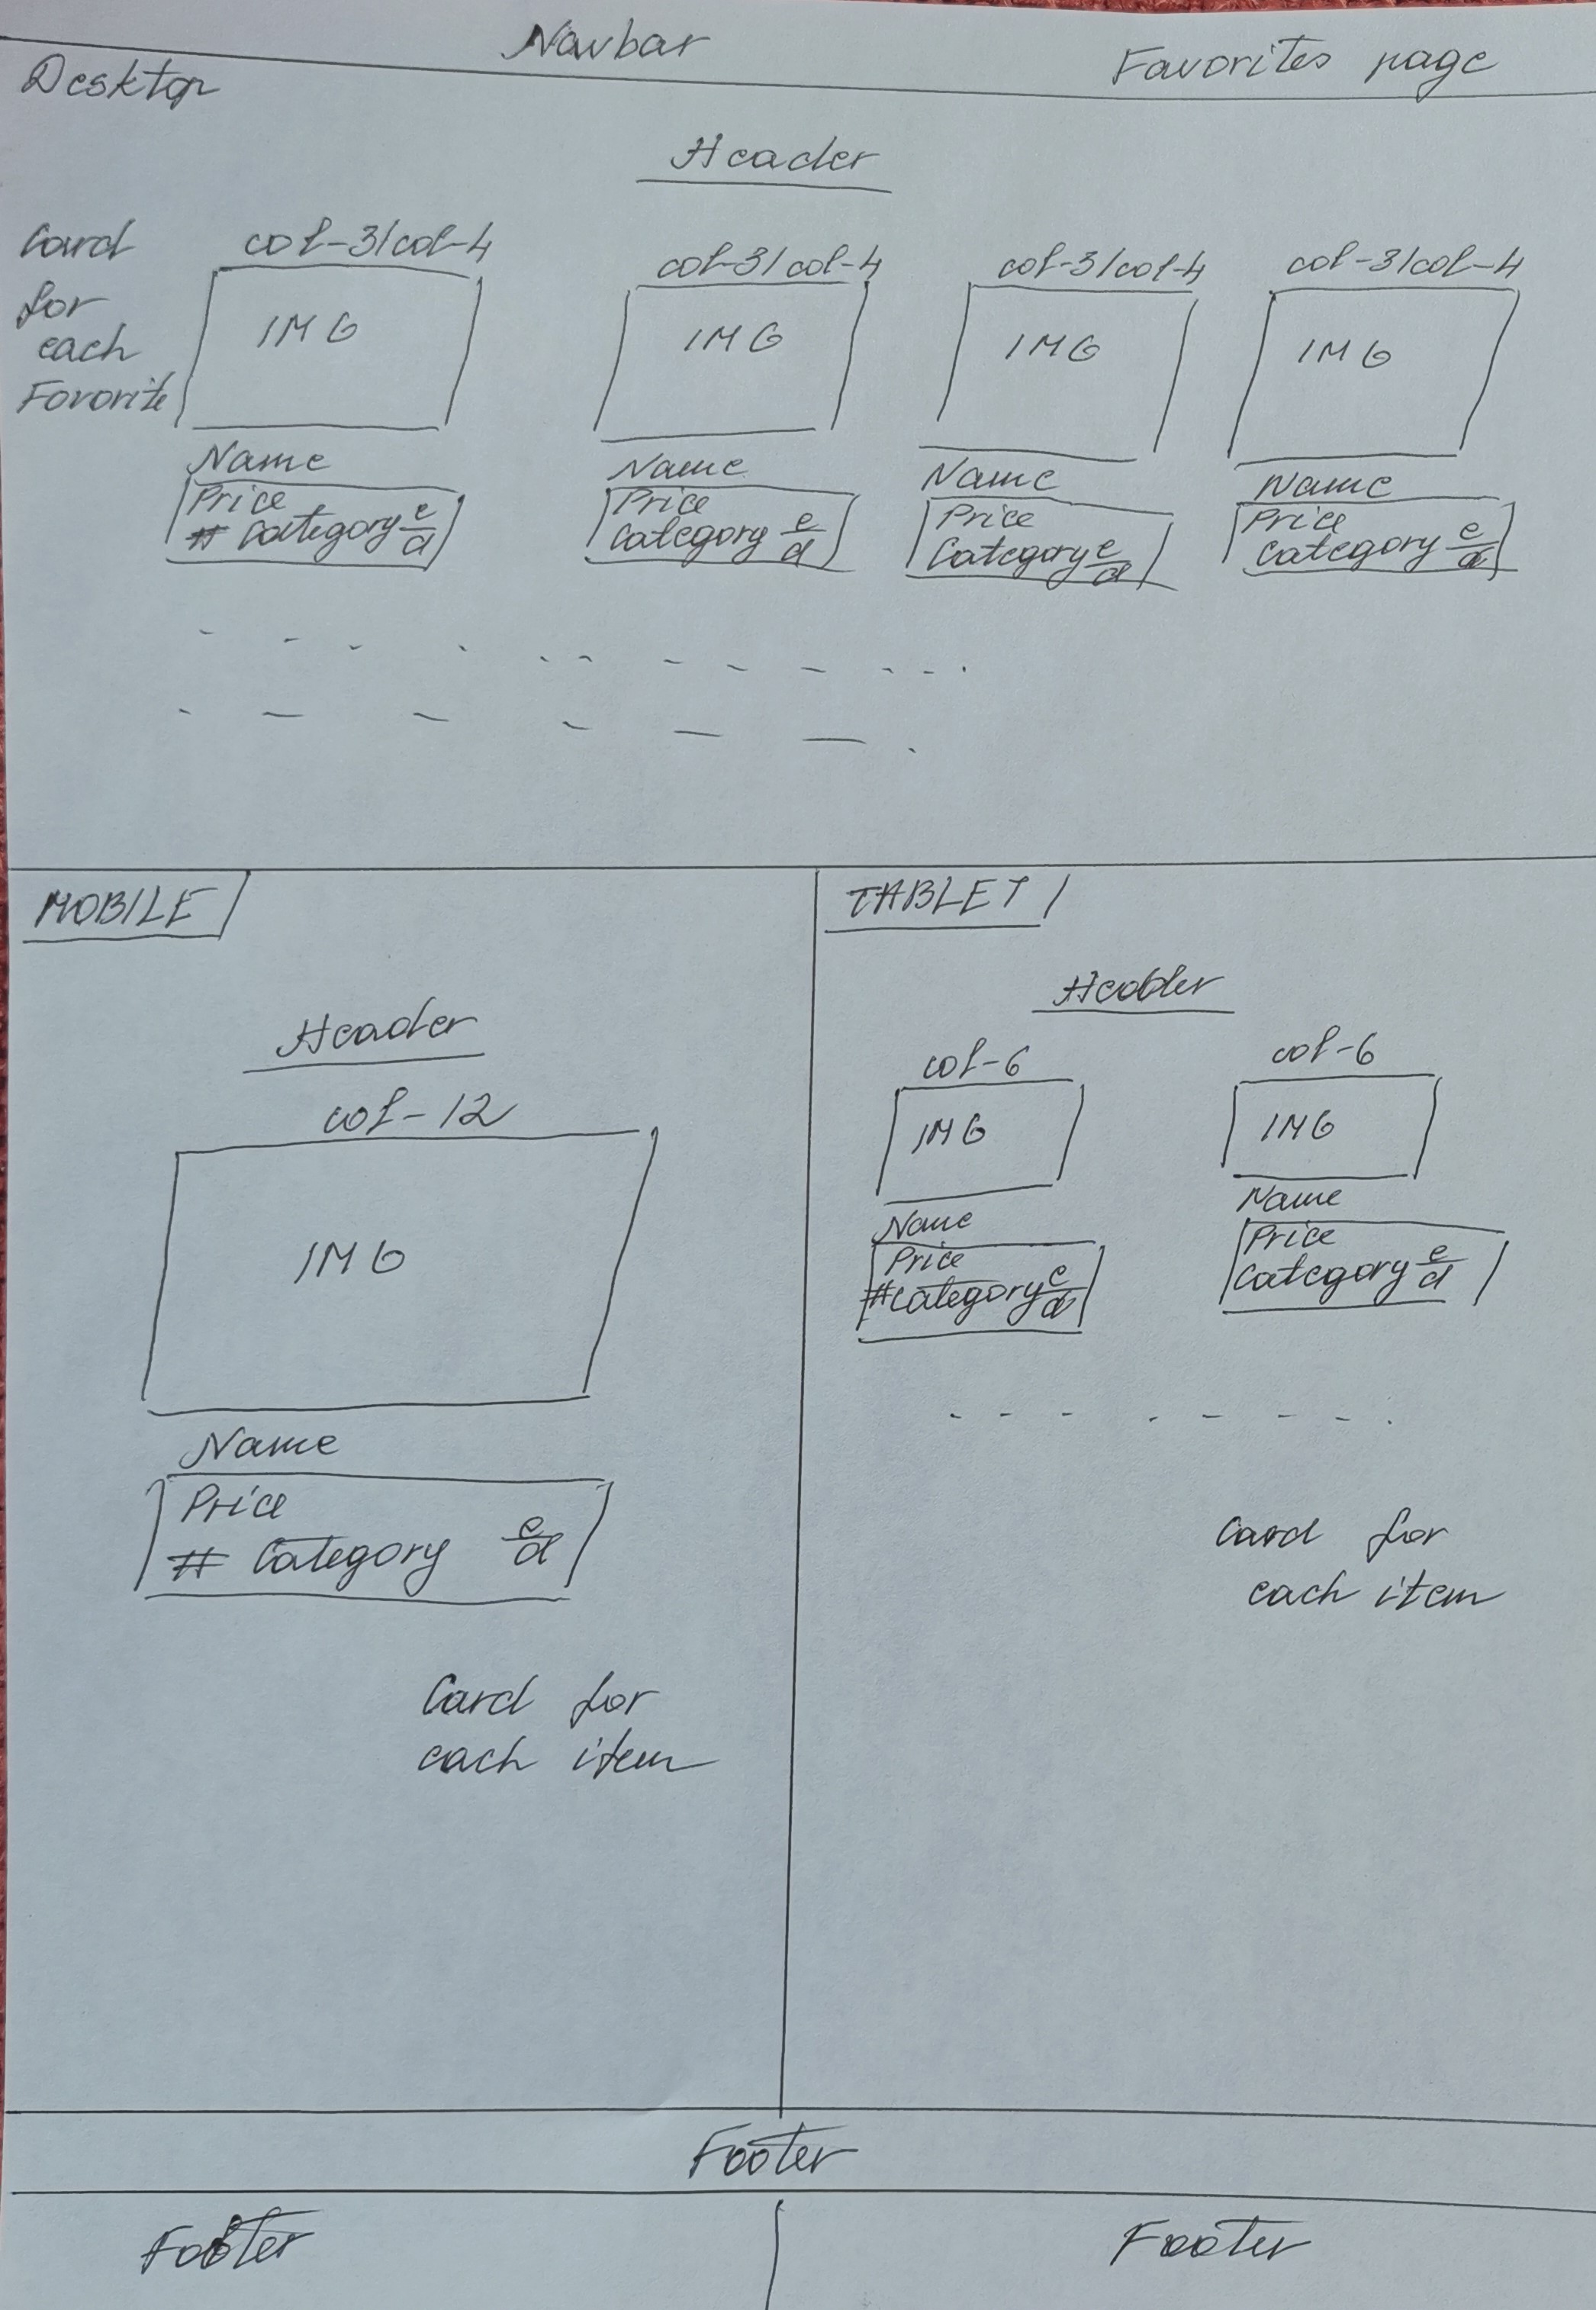 Navbar
Favorites page
Desktop
Header
Card
for
each
Fovorite
col-3/col-4
IMG
Name
Price
# Category e/d
col-3/col-4
IMG
Name
Price
Category e/d
col-3/col-4
IMG
Name
Price
Category e/d
col-3/col-4
IMG
Name
Price
Category e/d
MOBILE
Header
col-12
IMG
Name
Price
# Category e/d
Card for
each item
TABLET
Header
col-6
IMG
Name
Price
#Category e/d
col-6
IMG
Name
Price
Category e/d
Card for
each item
Footer
Footer
Footer